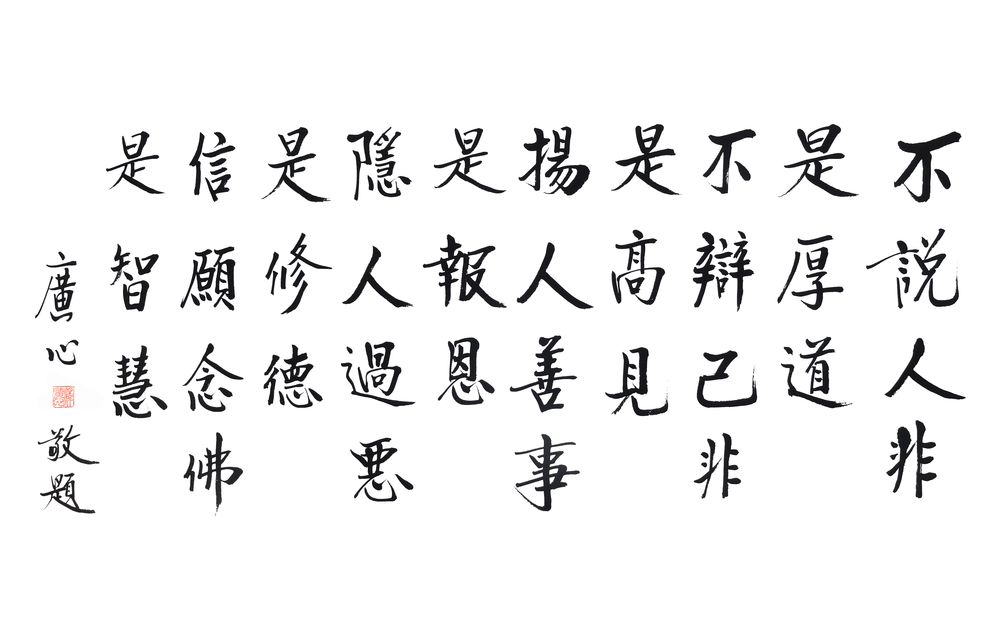 不説人非
是厚道
不辯己非
是高見
揚人善事
是報恩
隱人過惡
是修德
信願念佛
是智慧
廣心敬題